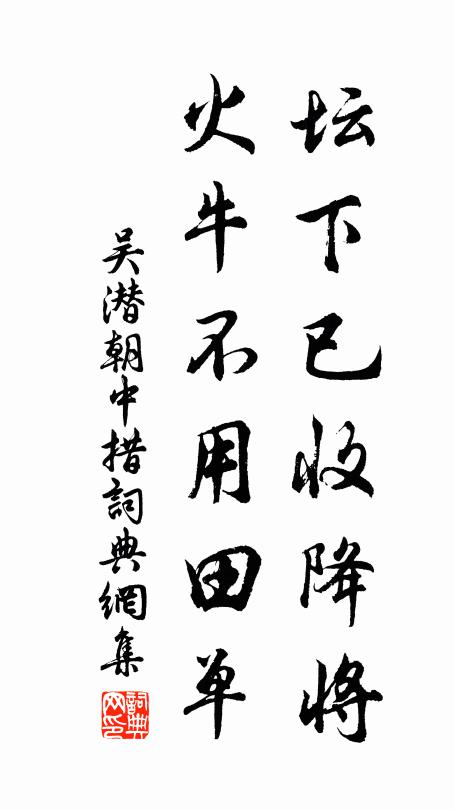 坛下已收降将
火牛不用田单
吴潜朝中措詞典網集
詞典网印